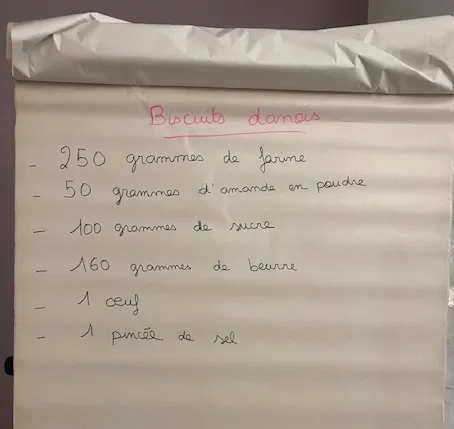 Biscuits danois
- 250 grammes de farine
- 50 grammes d'amande en poudre
- 100 grammes de sucre
- 160 grammes de beurre
- 1 œuf
- 1 pincée de sel